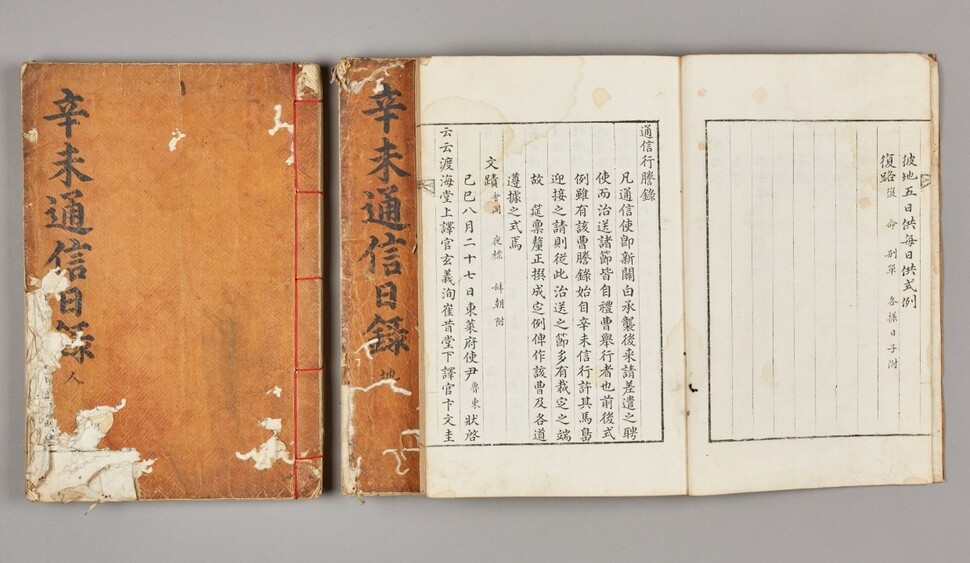 辛未通信日錄 人
辛未通信日錄 地
彼地五日供每日供式例
復路 復 命 別單 各樣日子附
通信行謄錄
凡通信使卽新關白承襲後來請差遣之聘
使而治送諸節皆自禮曹舉行者也前後式
例雖有該曹謄錄始自辛未信行許其馬島
迎接之請則從此治送之節多有裁定之端
故 筵稟釐正撰成定例俾作該曹及各道
遵據之式焉
文蹟 辭朝附
己巳八月二十七日東萊府使尹魯東狀啓
云云渡海堂上譯官玄義洵崔昔堂下譯官卞文圭